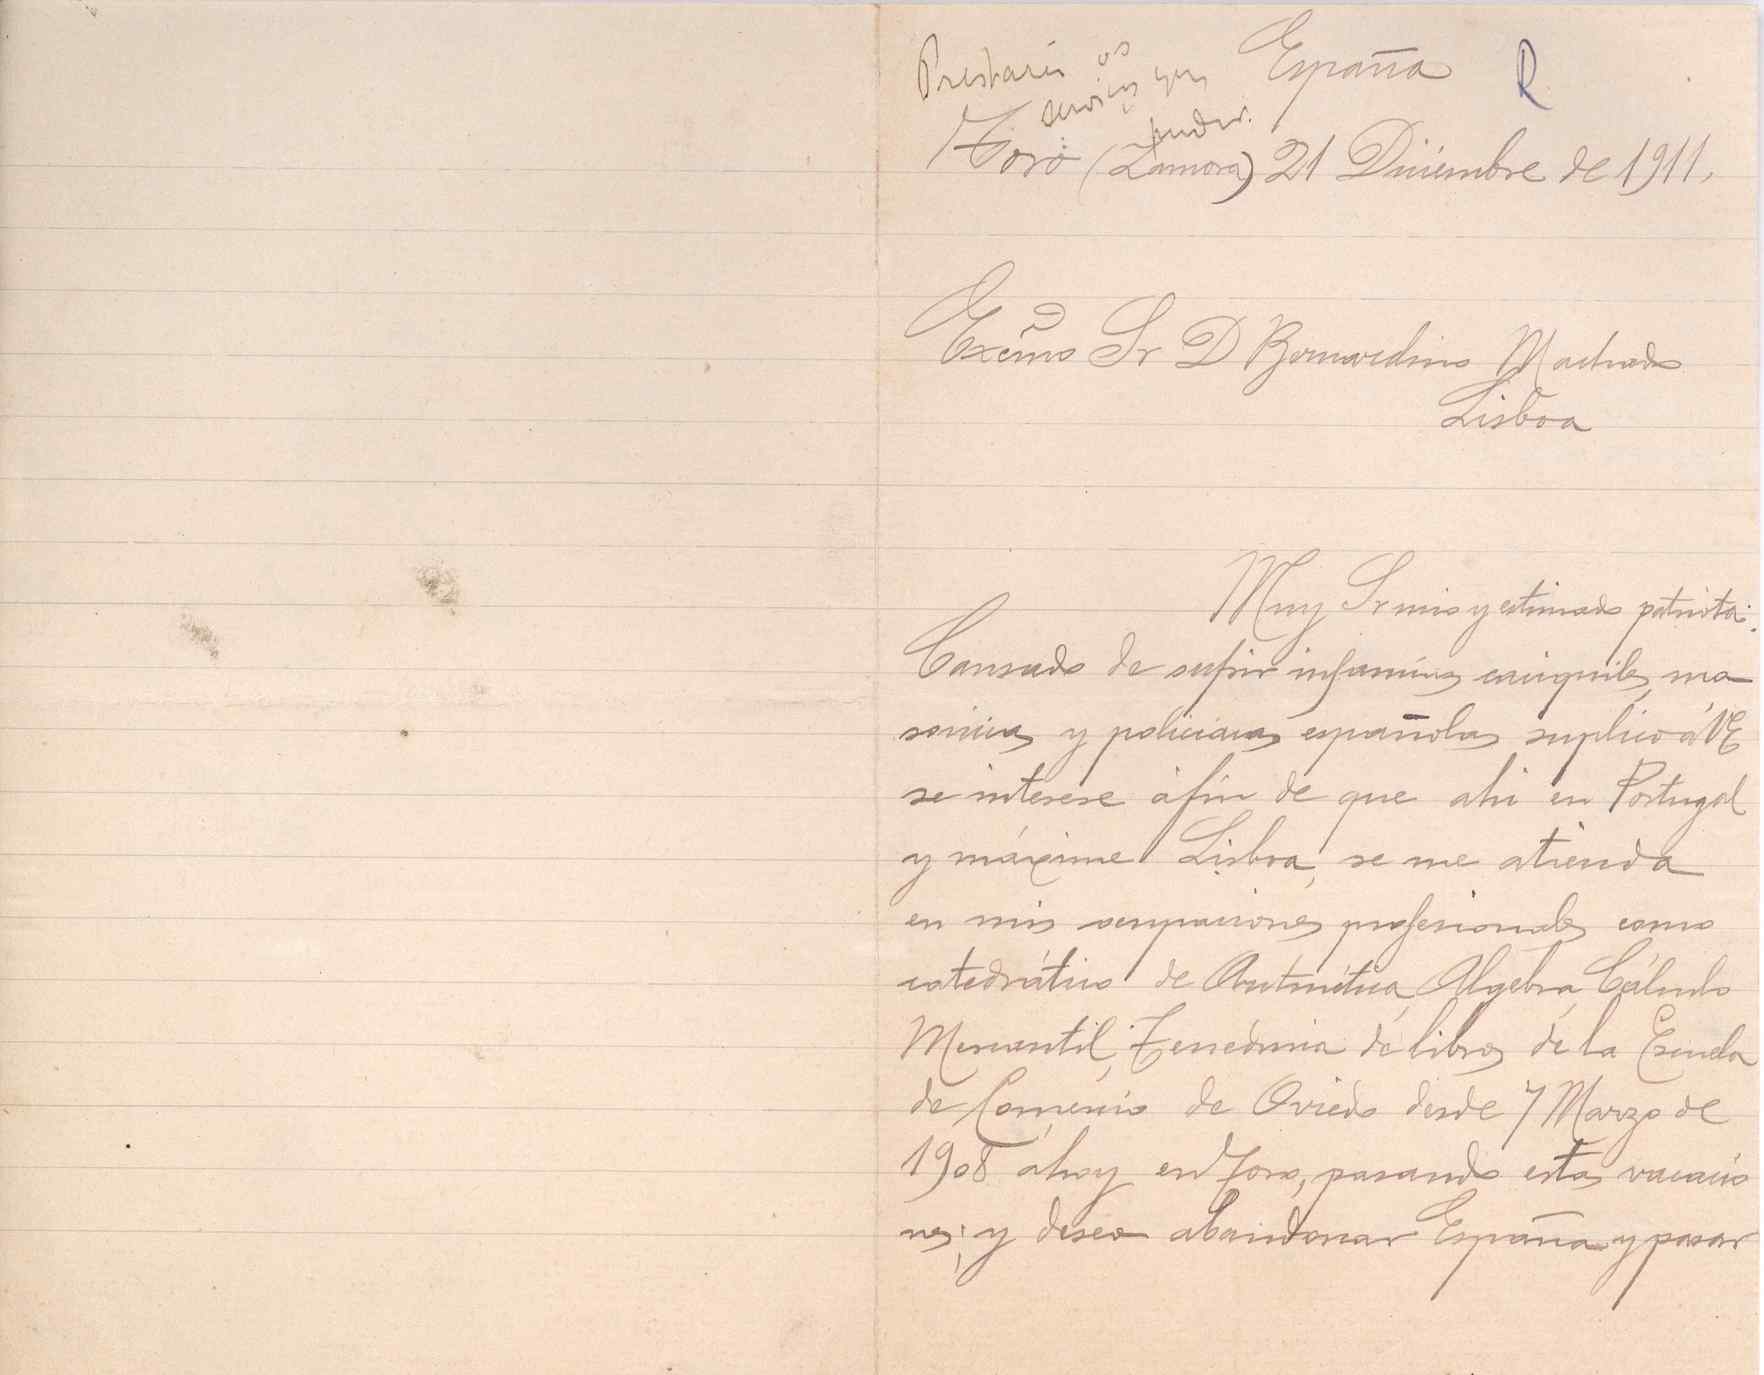 España
R
Prestarei os
serviços que
puder.
Toro (Zamora) 21 Diciembre de 1911.
Excmo Sr D Bernardino Machado
Lisboa
Muy Sr mio y estimado patriota:
Cansado de sufrir infamias caciquiles, ma-
sónicas y policiacas españolas suplico á VE
se interese áfin de que ahi en Portugal
y máxime Lisboa, se me atienda
en mis ocupaciones profesionales como
catedrático de Aritmética, Algebra, Cálculo
Mercantil, Teneduria de libros de la Escuela
de Comercio de Oviedo desde 7 Marzo de
1908 áhoy en Toro, pasando estas vacacio
nes; y deseo abandonar España y pasar